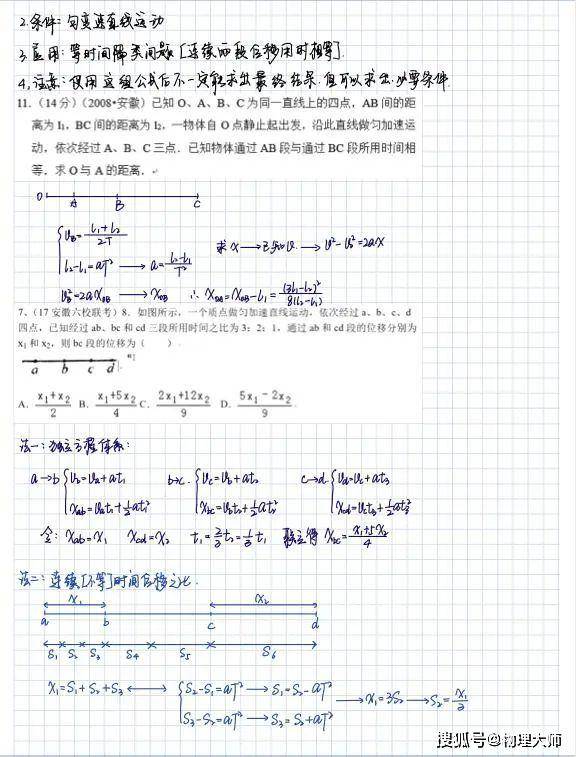 2.条件: 匀变速直线运动
3.应用: 等时间隔类问题 [连续两段位移用时相等].
4.注意: 使用这组公式后不一定能求出最终结果, 但可以求出必要条件
11.（14分）（2008•安徽）已知 O、A、B、C 为同一直线上的四点，AB 间的距
离为 l₁，BC 间的距离为 l₂，一物体自 O 点静止起出发，沿此直线做匀加速运
动，依次经过 A、B、C 三点．已知物体通过 AB 段与通过 BC 段所用时间相
等．求 O 与 A 的距离．
O A B C
{ v_B = (l₁+l₂)/2T
l₂-l₁=aT² → a=(l₂-l₁)/T²
求 x → 已知 v. → v²-v₀²=2ax
v_B²=2ax_OB → x_OB ∴ x_OA=x_OB-l₁=(3l₁-l₂)²/8(l₂-l₁)
7、（17 安徽六校联考）8. 如图所示，一个质点做匀加速直线运动，依次经过 a、b、c、d
四点，已知经过 ab、bc 和 cd 三段所用时间之比为 3：2：1，通过 ab 和 cd 段的位移分别为
x₁ 和 x₂，则 bc 段的位移为（ ）
a b c d
A. (x₁+x₂)/2 B. (x₁+5x₂)/4 C. (2x₁+12x₂)/9 D. (5x₁-2x₂)/9
法一: 独立方程体系:
a→b { v_b=v_a+at₁ b→c. { v_c=v_b+at₂ c→d. { v_d=v_c+at₃
x_ab=v_at₁+½at₁² x_bc=v_bt₂+½at₂² x_cd=v_ct₃+½at₃²
令: x_ab=x₁ x_cd=x₂ 联立得 x_bc=(x₁+5x₂)/4
法二: 连续[不等]时间位移之比.
x₁ x₂
a b c d
S₁ S₂ S₃ S₄ S₅ S₆
x₁=S₁+S₂+S₃ ↔ { S₂-S₁=aT² → S₁=S₂-aT²
S₃-S₂=aT² → S₃=S₂+aT² → x₁=3S₂ → S₂=x₁/3
搜狐号@物理大师